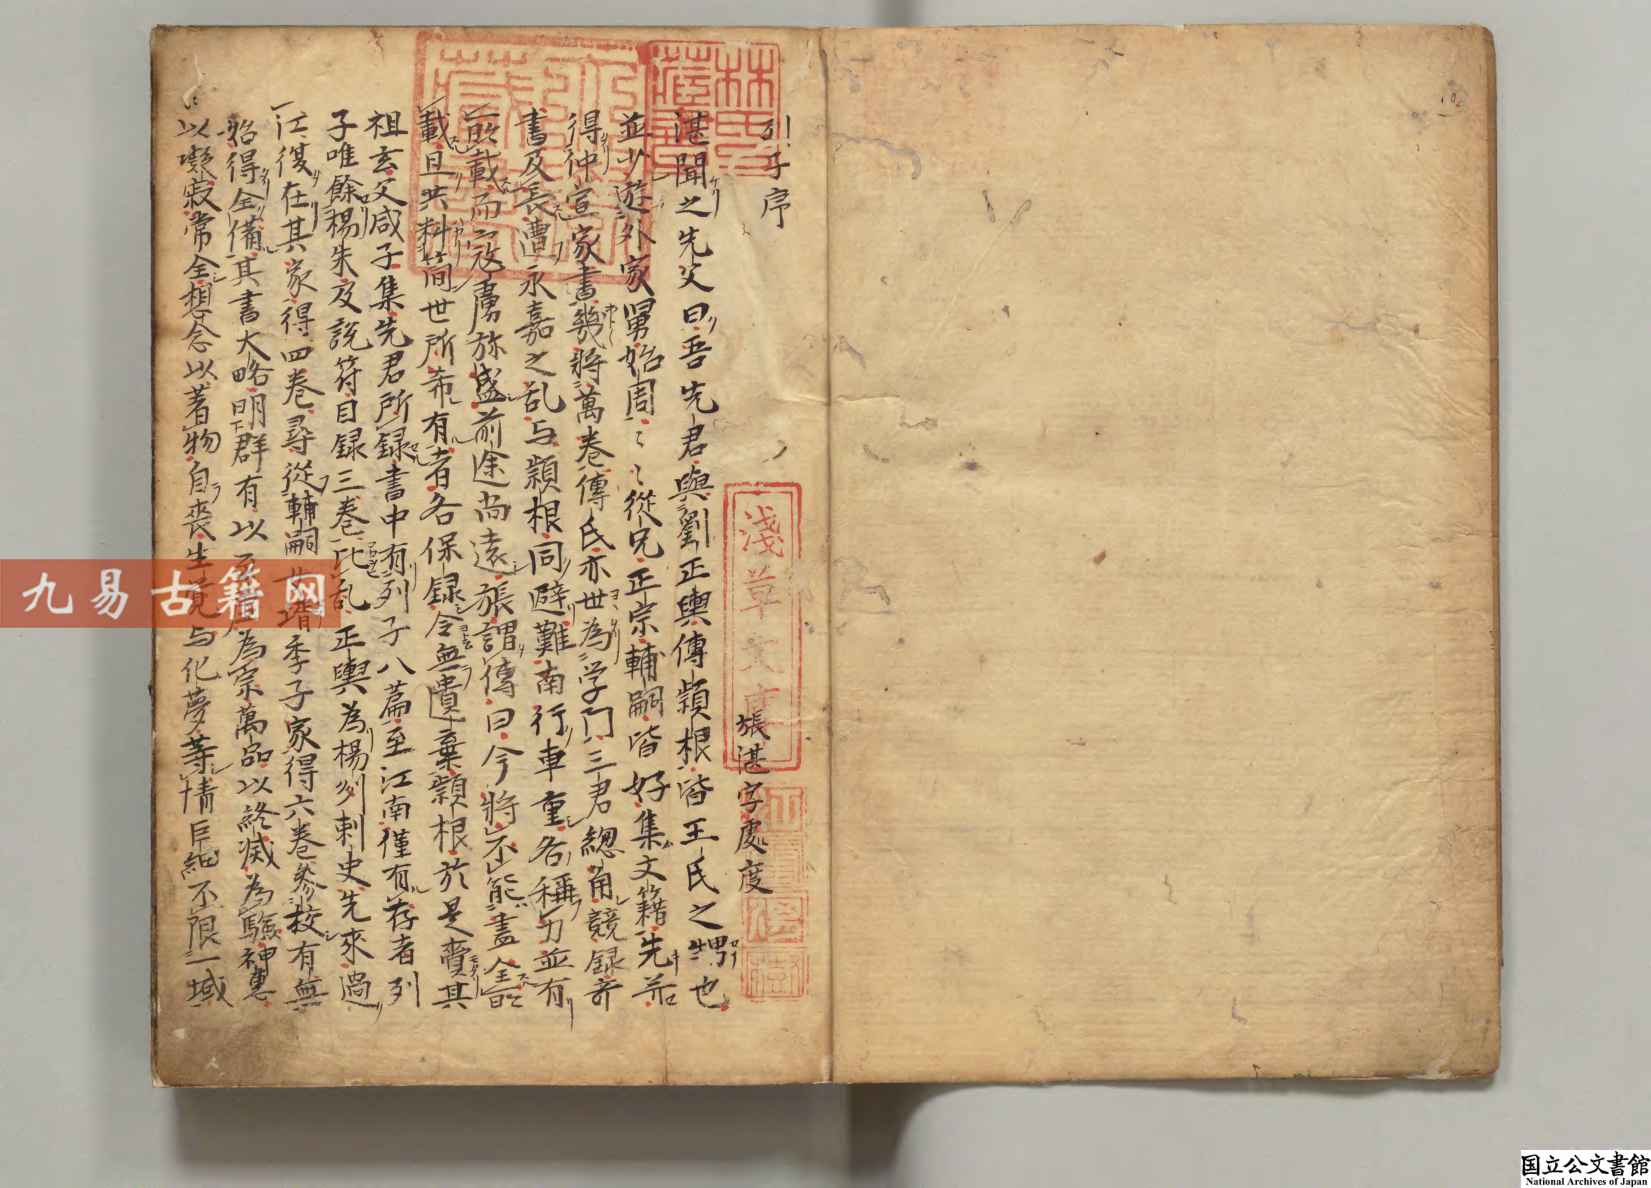 列子序
張湛字處度
湛聞之先父曰吾先君與劉正輿傅穎根皆王氏之甥也
並少遊外家舅始周〻〻從兄正宗輔嗣皆好集文籍先并
得仲宣家書幾將萬卷傅氏亦世為学門三君總角競録竒
書及長遭永嘉之乱与穎根同避難南行車重各稱力並有
所載而寇虜弥盛前途尚遠張謂傅曰今將不能盡全所
載且共料簡世所希有者各保録令無遺棄穎根於是賷其
祖玄父咸子集先君所録書中有列子八篇至江南僅有存者列
子唯餘楊朱及説符目録三卷比乱正輿為楊州刺史先來過
江復在其家得四卷尋從輔嗣 壻季子家得六卷參校有無
始得全備其書大略明群有以至 為宗萬品以終滅為驗神惠
以凝寂常全想念以著物自喪生覺与化夢等情巨細不限一域
林氏藏書
淺草文庫
九易古籍网
国立公文書館
National Archives of Japan